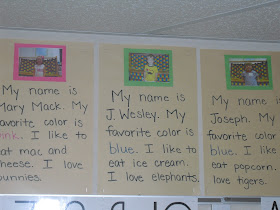 My name is
Mary Mack. My
favorite color is
pink. I like to
eat mac and
cheese. I love
bunnies.
My name is
J. Wesley. My
favorite color is
blue. I like to
eat ice cream.
I love elephants.
My name is
Joseph. My
favorite color
blue. I like
eat popcorn.
love tigers.